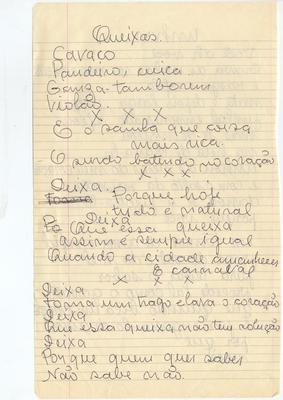 Queixas
Cavaco
Pandeiro, cuica
Ganza-tamborim
Violão.
X X X
E o samba que coisa
mais rica.
O surdo batendo no coração
X X X
Deixa.
Porque hoje
tudo é natural
Deixa
Que essa queixa
assim é sempre igual
Quando a cidade amanhecer
é carnaval
X X X
Deixa
Toma um trago e lava o coração
Deixa
Que essa queixa não tem solução
Deixa
Porque quem quer saber
Não sabe não.